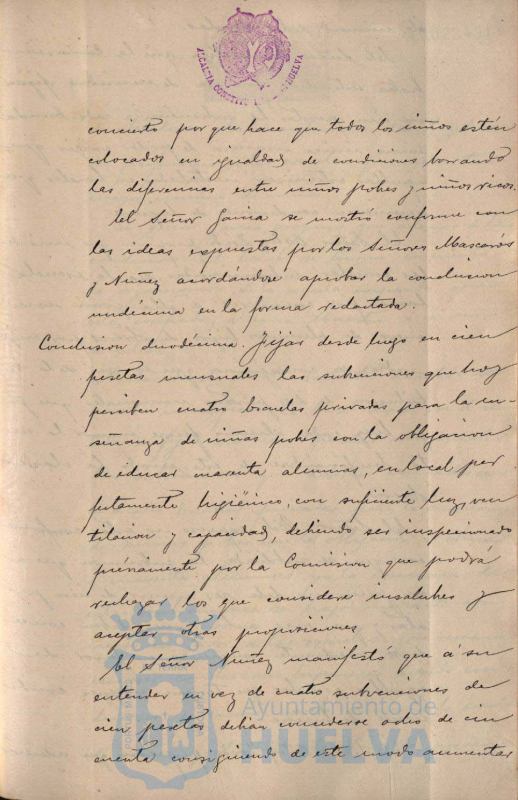 ALCALDIA CONSTITU HUELVA
concierto por que hace que todos los niños estén
colocados en igualdad de condiciones borrando
las diferencias entre niños pobes y niños ricos.
El Señor Gaina se mostró conforme con
las ideas expuestas por los Señores Mascarós
y Nuñez acordándose aprobar la conclusion
undécima en la forma redactada.
Conclusion duodécima. Fijar desde luego en cien
pesetas mensuales las subvenciones que hoy
perciben cuatro Escuelas privadas para la en-
señanza de niñas pobes con la obligacion
de educar cuarenta alumnas, en local per
fectamente higiénico, con suficiente luz, ven
tilacion y capacidad, debiendo ser inspeccionado
préviamente por la Comision que podrá
rechazar los que considere insalubres y
aceptar otras proposiciones
El Señor Nuñez manifestó que á su
entender en vez de cuatro subvenciones de
cien pesetas debian concederse ocho de cin
cuenta consiguiendo de este modo aumentar
Ayuntamiento de
HUELVA